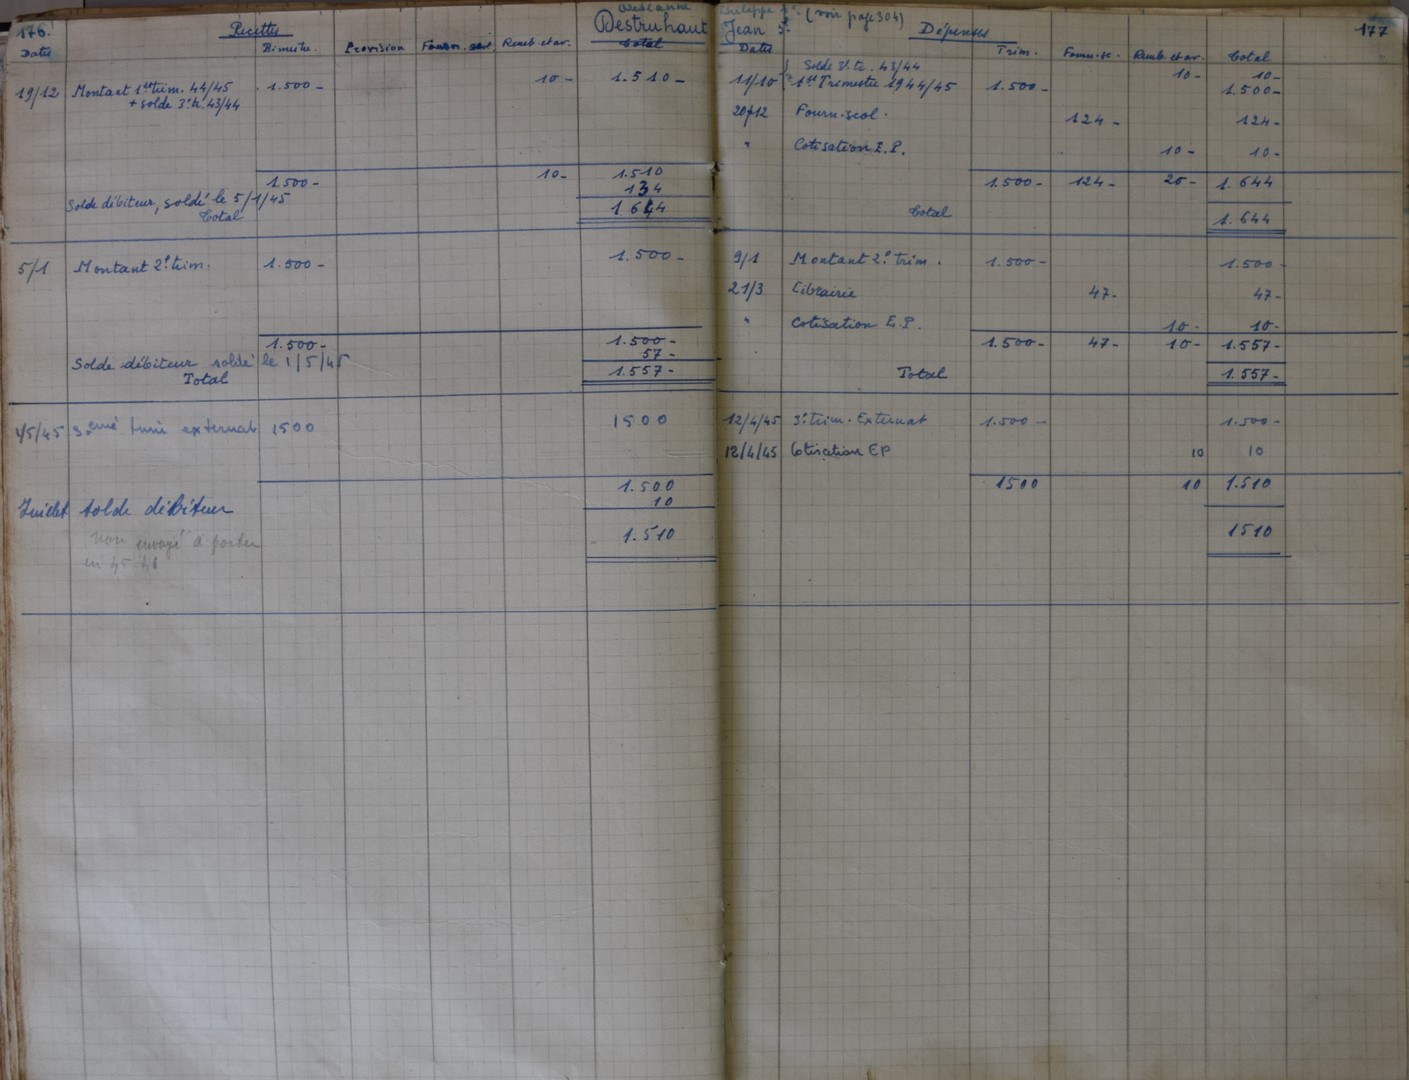 176.
Recettes
Destruhaut
Dates Trimestre. Provision Fourn. scol Remb. et av. Total
19/12 Montant 1er trim. 44/45 1.500 - 10 - 1.510 -
+ solde 3e tr. 43/44
1.500 - 10 - 1.510
Solde débiteur, soldé le 5/1/45 134
Total 1.644
5/1 Montant 2e trim. 1.500 - 1.500 -
1.500 - 1.500 -
Solde débiteur soldé le 1/5/45 57 -
Total 1.557 -
1/5/45 3.eme trim externat 1500 1500
1.500
Juillet solde débiteur 10
non envoyé à porter 1.510
en 45
Philippe (voir page 304)
Jean 5e Dépenses 177
Dates Trim. Fourn. sc. Remb. et av. Total
Solde 3e tr. 43/44 10 - 10 -
11/10 1er Trimestre 1944/45 1.500 - 1.500 -
20/12 Fourn. scol. 124 - 124 -
" Cotisation E.P. 10 - 10 -
1.500 - 124 - 20 - 1.644
Total 1.644
9/1 Montant 2e trim. 1.500 - 1.500 -
21/3 Librairie 47 - 47 -
" Cotisation E.P. 10 - 10 -
1.500 - 47 - 10 - 1.557 -
Total 1.557 -
12/4/45 3e trim. Externat 1.500 - 1.500 -
12/4/45 Cotisation EP 10 10
1500 10 1.510
1510